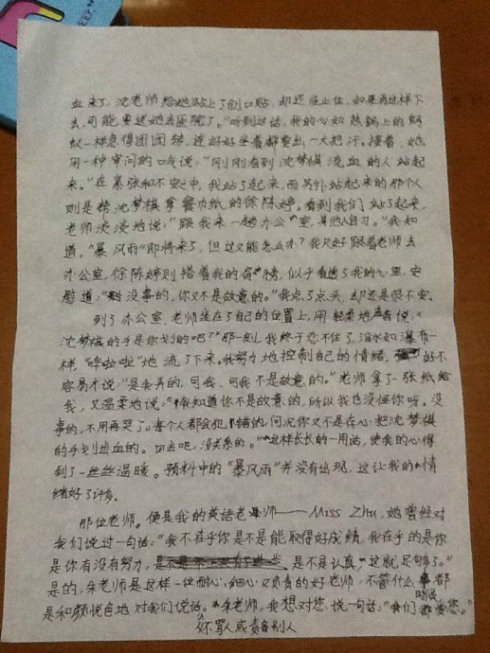 血来了,沈老师给她贴上了创口贴,却还没止住,如果再这样下
去,可能要送她去医院了。"听到这话,我的心如热锅上的蚂
蚁一样急得团团转,连好好坐着都要出一大把汗。接着,她
用一种审问的口气说:"刚刚看到沈梦棋流血的人站起
来。"在紧张和不安中,我站了起来,而另外站起来的那个人
则是替沈梦棋拿餐巾纸的徐陈婷。看到我们站了起来,
老师淡淡地说:"跟我来一趟办公室,其他人自习。"我知
道,"暴风雨"即将来了,但这又能怎么办?我只好跟着老师去
办公室,徐陈婷则搭着我的肩膀,似乎看透了我的心里,安
慰道:"没事的,你又不是故意的。"我点了点头,却还是很不安。
到了办公室,老师坐在了自己的位置上,用轻柔地声音说:"
沈梦棋的手是你划的吧?"那一刻,我终于忍不住了,泪水如瀑布一
样"哗啦啦"地流了下来。我努力地控制自己的情绪,好不
容易才说:"是我弄的,可我,可我不是故意的。"老师拿了一张纸给
我,又温柔地说:"我知道你不是故意的,所以我也没怪你呀。没
事的,不用再哭了。每个人都会犯错的,何况你又不是存心把沈梦棋
的手划出血的。回去吧,没关系的。"这样长长的一席话,使我的心得
到了一丝丝温暖。预料中的"暴风雨"并没有出现,这让我的情
绪好了许多。
那位老师。便是我的英语老师——Miss Zhu,她曾经对
我们说过一句话:"我不在乎你是不是能取得好成绩,我在乎的是你
是你有没有努力,是不是认真,这就足够了。"
是的,朱老师是这样一位耐心、细心又负责的好老师,不管什么事都
是和颜悦色地对我们说话。朱老师,我想对您说一句话:"我们都爱您。"
不骂人或责备别人